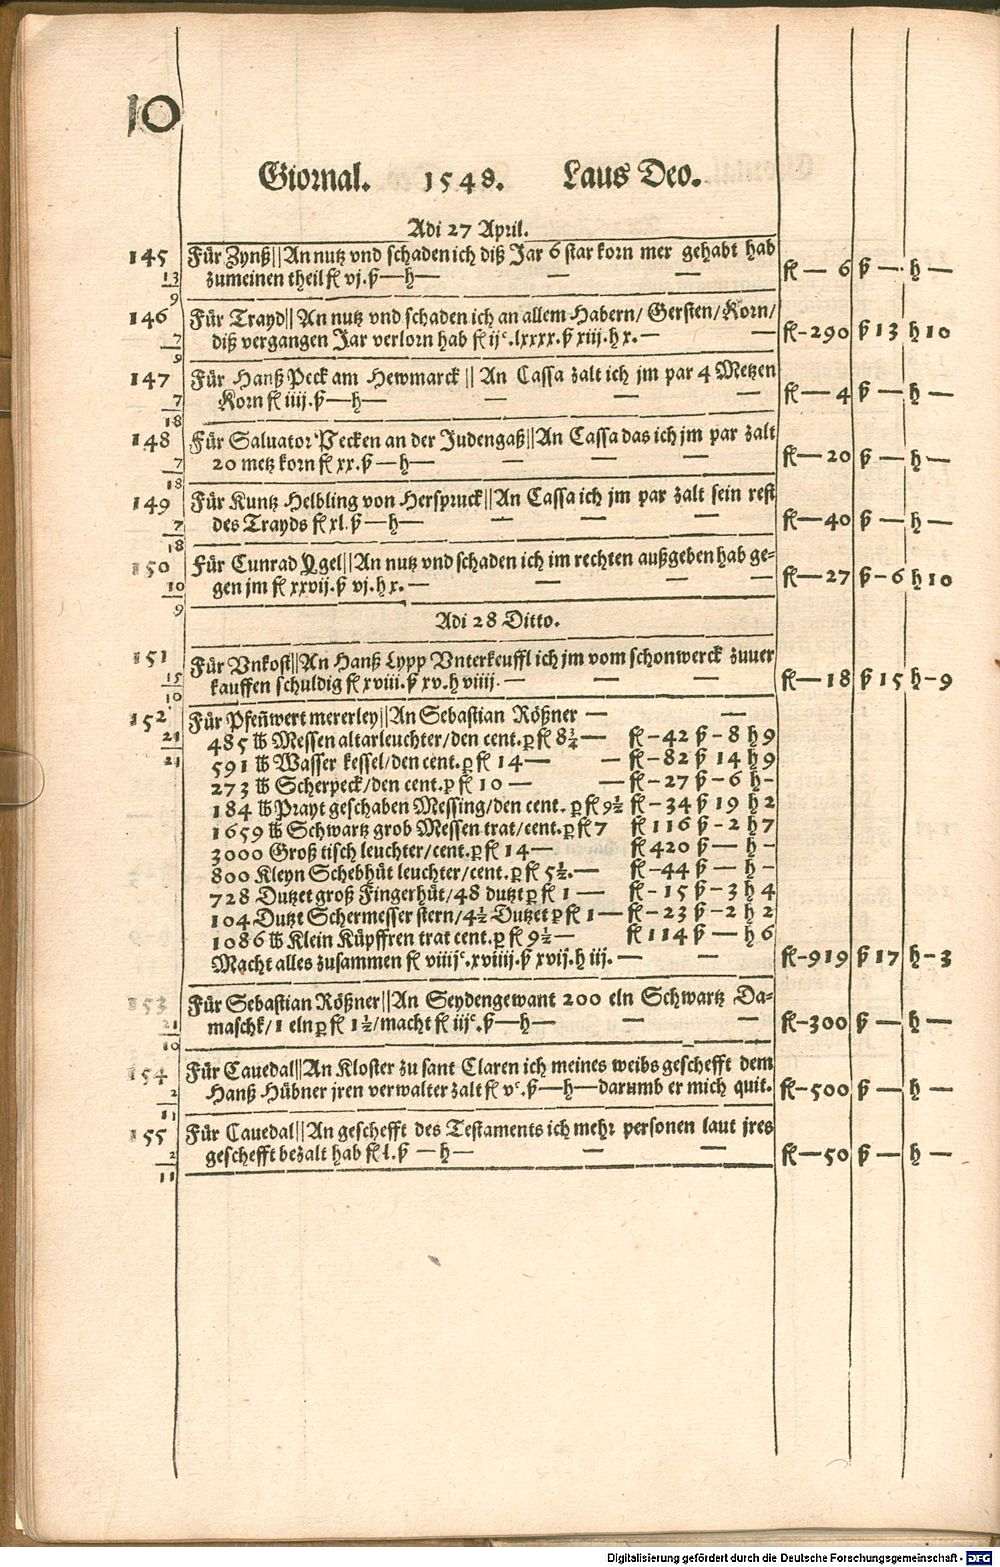 10
Giornal. 1548. Laus Deo.
Adi 27 April.
145 Für Zynß||An nutz vnd schaden ich diß Jar 6 star korn mer gehabt hab
13 zu meinen theil fl vj.ß—h— — — fl— 6 ß— h—
9
146 Für Trayd||An nutz vnd schaden ich an allem Habern/ Gersten/ Korn/
7 diß vergangen Jar verlorn hab fl ijᶜ.lxxxx.ß xiij.h x.— — fl-290 ß 13 h 10
9
147 Für Hanß Peck am Hewmarck || An Cassa zalt ich jm par 4 Metzen
7 Korn fl iiij.ß—h— — — — fl— 4 ß— h—
18
148 Für Saluator Pecken an der Judengaß||An Cassa das ich jm par zalt
7 20 metz korn fl xx.ß—h— — — — fl—20 ß— h—
18
149 Für Kuntz Helbling von Herspruck||An Cassa ich jm par zalt sein rest
7 des Trayds fl xl.ß—h— — — — fl—40 ß— h—
18
150 Für Cunrad Ygel||An nutz vnd schaden ich im rechten außgeben hab ge-
10 gen jm fl xxvij.ß vj.h x.— — — — fl—27 ß-6 h 10
9
Adi 28 Ditto.
151 Für Vnkost||An Hanß Lypp Vnterkeuffl ich jm vom schonwerck zuuer
15 kauffen schuldig fl xviii.ß xv.h viiij.— — — fl—18 ß 15 h-9
10
152 Für Pfeñwert mererley||An Sebastian Rößner — —
21 485 ℔ Messen altarleuchter/den cent.ꝑ fl 8¾— fl-42 ß-8 h 9
21 591 ℔ Wasser kessel/den cent.ꝑ fl 14— — fl-82 ß 14 h 9
273 ℔ Scherpeck/den cent.ꝑ fl 10 — — fl-27 ß-6 h-
184 ℔ Prayt geschaben Messing/den cent. ꝑ fl 9½ fl-34 ß 19 h 2
1659 ℔ Schwartz grob Messen trat/cent.ꝑ fl 7 fl 116 ß-2 h 7
3000 Groß tisch leuchter/cent.ꝑ fl 14— fl 420 ß— h-
800 Kleyn Schebhüt leuchter/cent.ꝑ fl 5½.— fl-44 ß— h-
728 Dutzet groß Fingerhüt/48 dutzt ꝑ fl 1 — fl-15 ß-3 h 4
104 Dutzt Schermesser stern/4½ Dutzet ꝑ fl 1— fl-23 ß-2 h 2
1086 ℔ Klein Küpffren trat cent.ꝑ fl 9½— fl 114 ß— h 6
Macht alles zusammen fl viiijᶜ.xviiij.ß xvij.h iij.— — fl-919 ß 17 h-3
153 Für Sebastian Rößner||An Seydengewant 200 eln Schwartz Da-
21 maschk/1 eln ꝑ fl 1½/macht fl iijᶜ.ß—h— — — fl-300 ß— h—
10
154 Für Cauedal||An Kloster zu sant Claren ich meines weibs geschefft dem
2 Hanß Hübner jren verwalter zalt fl vᶜ.ß—h—darumb er mich quit. fl-500 ß— h—
11
155 Für Cauedal||An geschefft des Testaments ich mehr personen laut jres
2 geschefft bezalt hab fl l.ß —h— — — fl—50 ß— h—
11
Digitalisierung gefördert durch die Deutsche Forschungsgemeinschaft - DFG